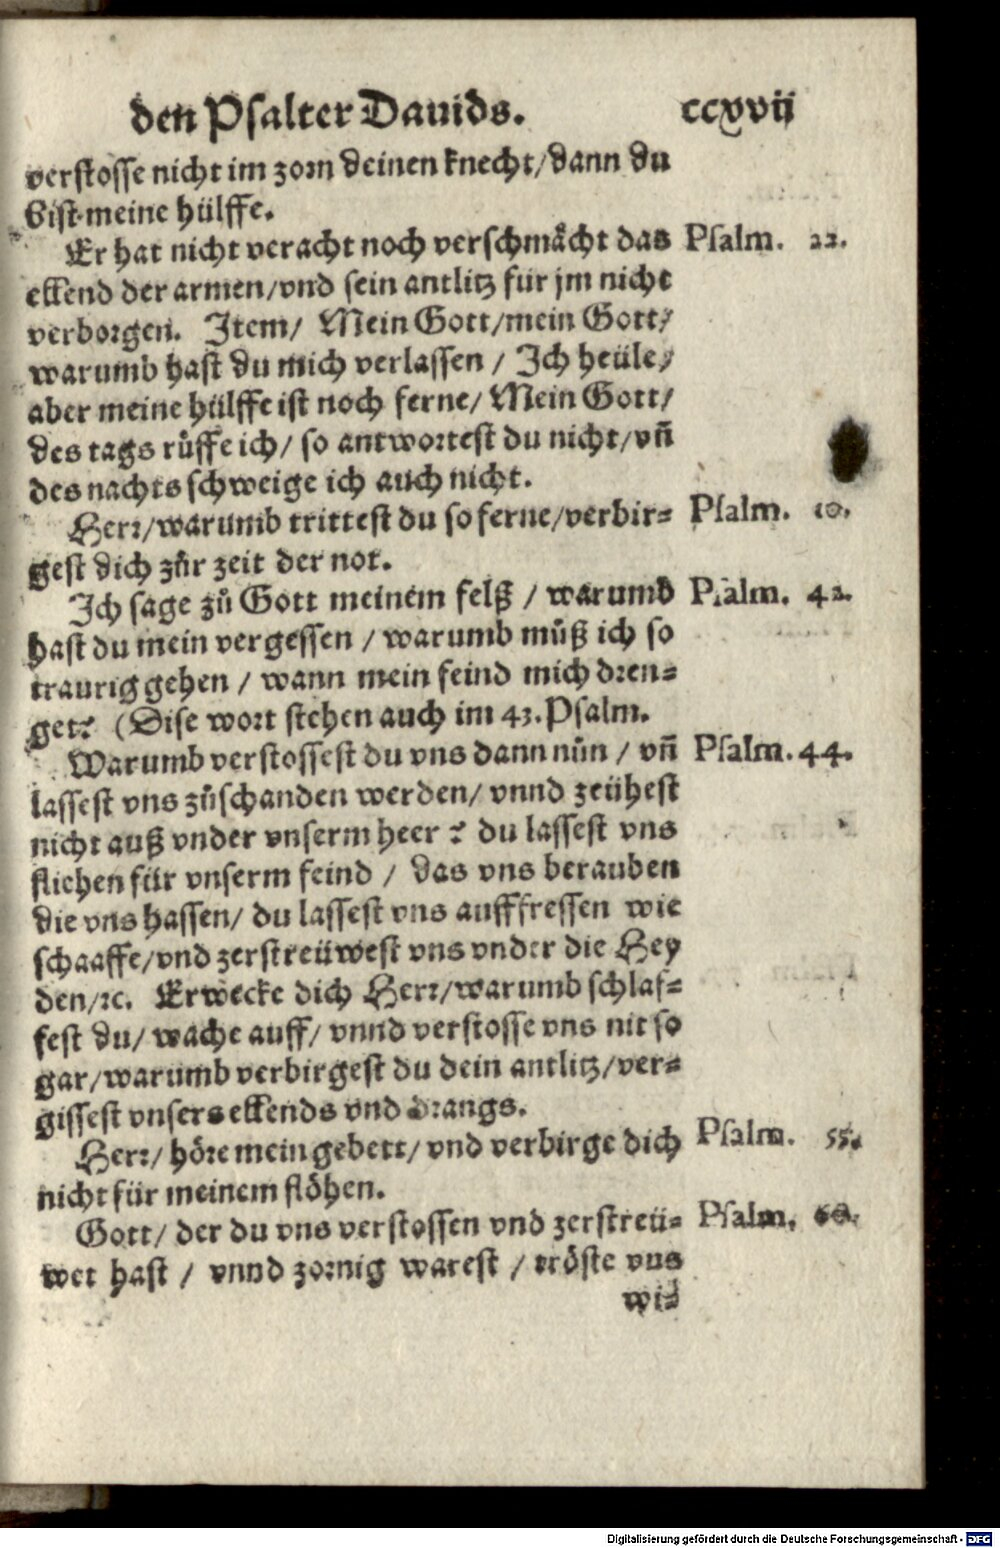 den Psalter Dauids. ccxvii
verstosse nicht im zorn deinen knecht/dann du
bist meine hülffe.
Er hat nicht veracht noch verschmächt das Psalm. 22.
ellend der armen/vnd sein antlitz für jm nicht
verborgen. Item/ Mein Gott/mein Gott/
warumb hast du mich verlassen / Ich heüle/
aber meine hülffe ist noch ferne/ Mein Gott/
des tags rüffe ich/ so antwortest du nicht/vñ
des nachts schweige ich auch nicht.
Herr/warumb trittest du so ferne/verbir= Psalm. 10.
gest dich zůr zeit der not.
Ich sage zů Gott meinem felß / warumb Psalm. 42.
hast du mein vergessen / warumb můß ich so
traurig gehen / wann mein feind mich dren=
get? (Dise wort stehen auch im 43. Psalm.
Warumb verstossest du vns dann nůn / vñ Psalm. 44.
lassest vns zůschanden werden/ vnnd zeühest
nicht auß vnder vnserm heer ? du lassest vns
fliehen für vnserm feind / das vns berauben
die vns hassen/ du lassest vns aufffressen wie
schaaffe/vnd zerstreüwest vns vnder die Hey
den/ꝛc. Erwecke dich Herr/warumb schlaf=
fest du/ wache auff/ vnnd verstosse vns nit so
gar/warumb verbirgest du dein antlitz/ver=
gissest vnsers ellends vnd drangs.
Herr/ höre mein gebett/ vnd verbirge dich Psalm. 55.
nicht für meinem flöhen.
Gott/ der du vns verstossen vnd zerstreü= Psalm. 60.
wet hast / vnnd zornig warest / tröste vns
wi=
Digitalisierung gefördert durch die Deutsche Forschungsgemeinschaft - DFG